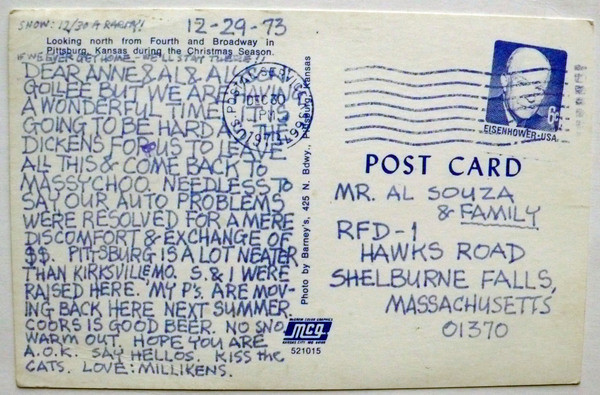 SNOW: 12/30 A RARITY!
12-29-73
Looking north from Fourth and Broadway in
Pittsburg, Kansas during the Christmas Season.
IF WE EVER GET HOME - WE'LL STAY THERE!!
DEAR ANNE & AL & ALL
GOLLEE BUT WE ARE HAVING
A WONDERFUL TIME. IT IS
GOING TO BE HARD AS THE
DICKENS FOR US TO LEAVE
ALL THIS & COME BACK TO
MASSYCHOO. NEEDLESS TO
SAY OUR AUTO PROBLEMS
WERE RESOLVED FOR A MERE
DISCOMFORT & EXCHANGE OF
$$. PITTSBURG IS A LOT NEATER
THAN KIRKSVILLE MO. S. & I WERE
RAISED HERE. MY P's. ARE MOV-
ING BACK HERE NEXT SUMMER.
COORS IS GOOD BEER. NO SNO,
WARM OUT. HOPE YOU ARE
A.O.K. SAY HELLOS. KISS the
CATS. LOVE: MILLIKENS.
U.S. POSTAL SERVICE
DEC 30
PM
1973
667
Photo by Barney's, 425 N. Bdwy., Pittsburg, Kansas
McGREW COLOR GRAPHICS
mcg
KANSAS CITY, MO.
521015
6¢
EISENHOWER·USA
POST CARD
MR. AL SOUZA
& FAMILY
RFD-1
HAWKS ROAD
SHELBURNE FALLS,
MASSACHUSETTS
01370